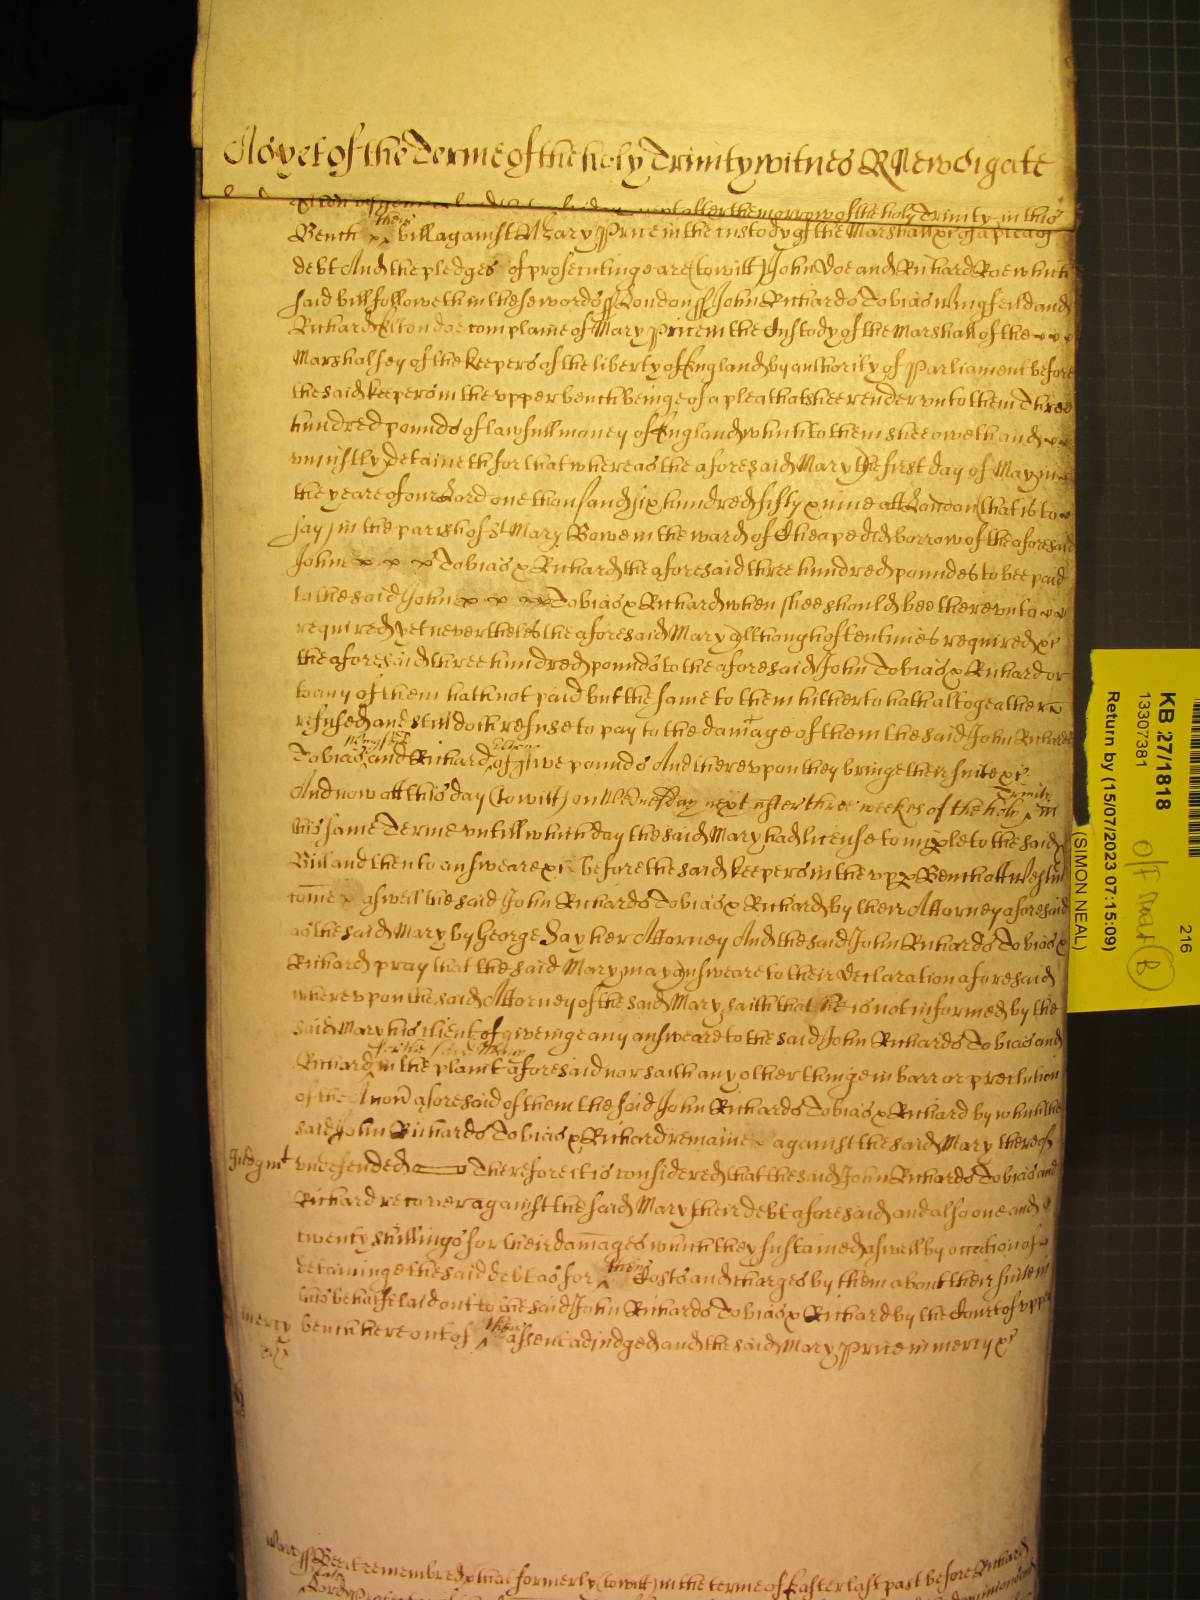 As yet of the Terme of the holy Trinity witnes R Newdigate
next after the morrow of the holy Trinity in this
Bench x x their bill against Mary Price in the custody of the Marshall xc of a plea of
debt And the pledges of prosecutinge are (to witt) John Doe and Richard Roe which
said bill followeth in these words ss London ss John Richards Tobias Wingfeild and
Richard Elton doe complaine of Mary Price in the Custody of the Marshall of the x x x
Marshalsey of the keepers of the liberty of England by authority of Parliament before
the said keepers in the upper bench beinge of a plea that shee render vnto them Three
hundred pounds of lawfull money of England which to them shee oweth and x x
vniustly detaineth for that whereas the aforesaid Mary the first day of May in
the yeare of our Lord one thousand six hundred fifty x nine att London (that is to
say) in the parish of St Mary Bowe in the ward of Cheape did borrow of the aforesaid
John x x x Tobias x Richard the aforesaid three hundred poundes to bee paid
to the said John x x x Tobias x Richard when shee should bee therevnto x x
required yet neverthelesse the aforesaid Mary allthough oftentimes required xc
the aforesaid three hundred pounds to the aforesaid John Tobias x Richard or
to any of them hath not paid but the same to them hitherto hath altogeather
refused and still doth refuse to pay to the damage of them the said John Richards
Tobias Wingfeild and Richard Elton of five pounds And therevpon they bringe their suite xc
And now att this day (to witt) on Wednesday next after three weekes of the holy Trinity in
this same Terme untill which day the said Mary had license to imple to the said
Bill and then to answeare xc before the said keepers in the upp x Bench att Westm
come x aswell the said John Richards Tobias x Richard by their Attorney aforesaid
as the said Mary by George Day her Attorney And the said John Richards Tobias x
Richard pray that the said Mary may answeare to their declaration aforesaid
wherevpon the said Attorney of the said Mary saith that he is not informed by the
said Mary his client of giveinge any answeare to the said John Richards Tobias and
Richard for the said Mary in the plaint aforesaid nor saith any other thinge in barr or preclution
of the Accon aforesaid of them the said John Richards Tobias x Richard by which the
said John Richards Tobias x Richard remaine x against the said Mary thereof
Judgmt vndefended Therefore it is considered that the said John Richards Tobias and
Richard recover against the said Mary their debt aforesaid and also one and
twenty shillings for their damages which they sustained aswell by occation of
detaininge the said debt as for their Costs and charges by them about their suite in
this behalfe laid out to the said John Richards Tobias x Richard by the Court of upper
mercy bench here out of their assent adjudged and the said Mary Price in mercy xc
ss Bee it remembred that formerly (to witt) in the terme of Easter last past before Richard
KB 27/1818
13307381
Return by (15/07/2023 07:15:09)
(SIMON NEAL)
216